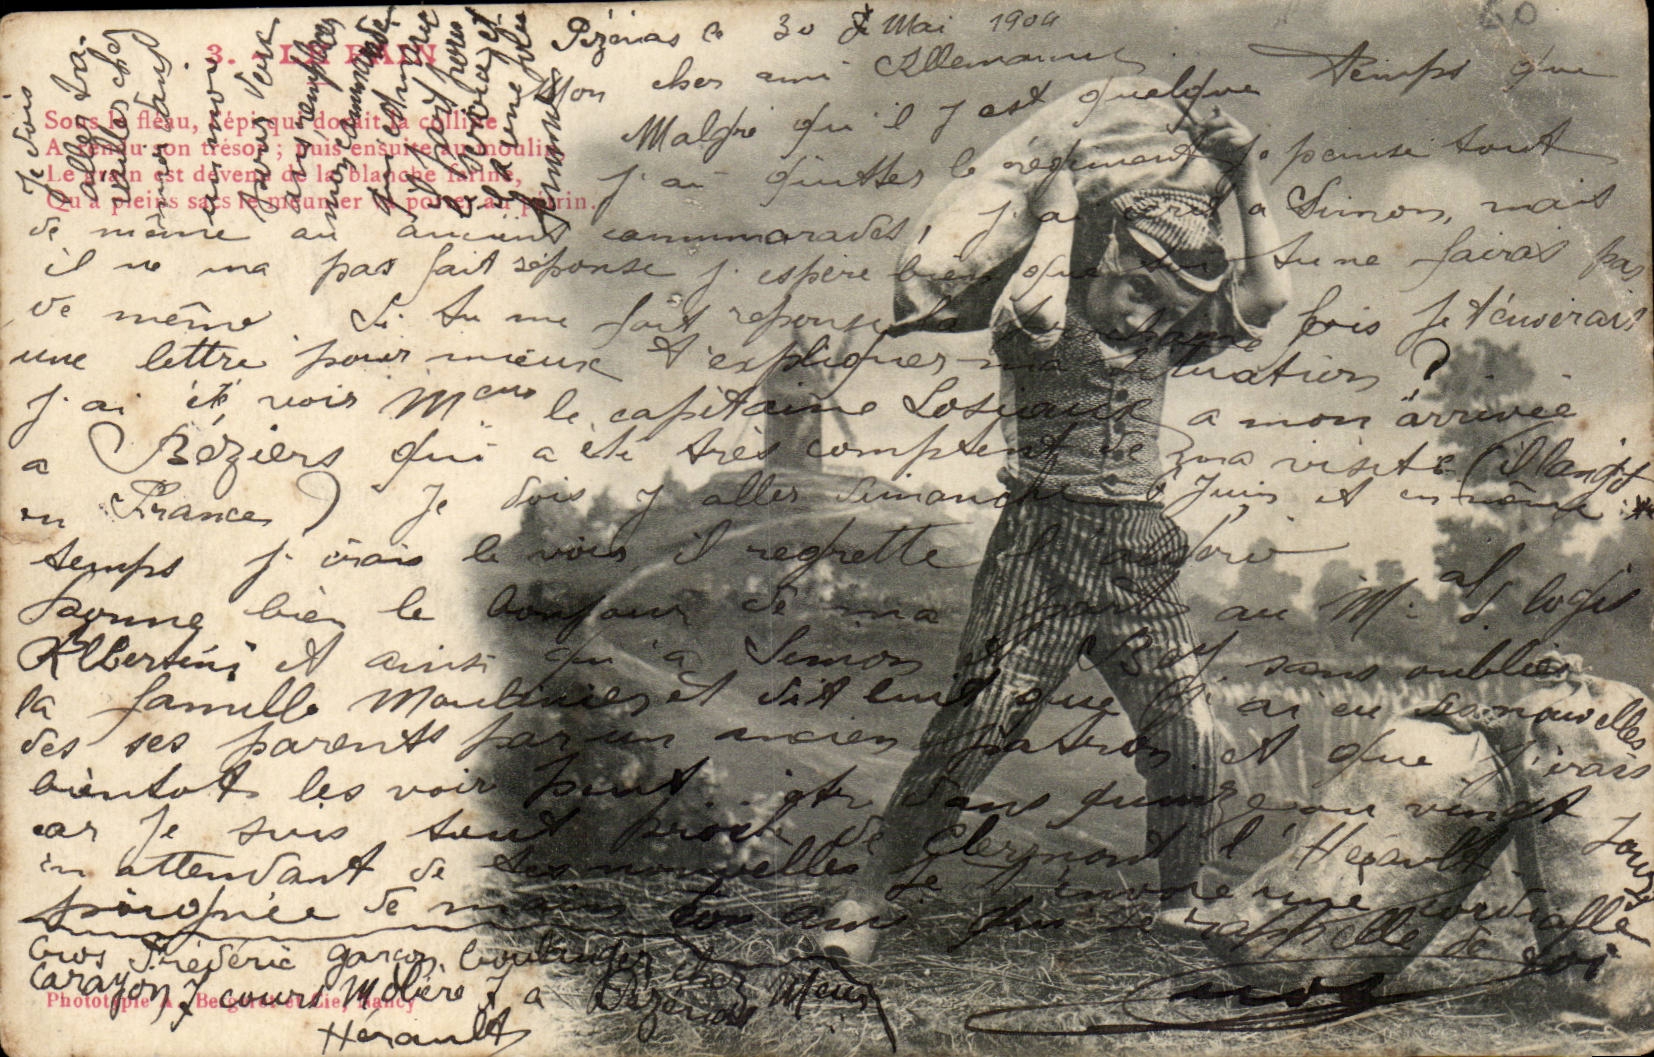 3. - LE PAIN
Sous le fléau, l'épi qui dorait la colline
A rendu son trésor ; puis ensuite au moulin
Le grain est devenu de la blanche farine,
Qu'à pleins sacs le meunier va porter au pétrin.
Pézenas le 30 de Mai 1904
Mon cher ami Allemand
Malgré qu'il y est quelque temps que
j'ai quitter le régiment je pense tout
de même au anciens cammarades, j'ai écrit a Simon, mais
il ne ma pas fait réponse j'espère bien que toi tu ne fairas pas
de même. Si tu me fait reponse la prochaine fois je t'enverais
une lettre pour mieux t'expliquer ma situation ?
j'ai été voir Mr le capitaine a mon arrivée
a Béziers qui a été très comptent de ma visite (il langit
en France) Je dois y aller dimanche 5 Juin et en même
temps j'irais le voir, il regrette l'
Donne bien le bonjour de ma part au Mal des logis
Albertini et ainsi qu'à Simon et Bay sans oublier
la famille Moulinier et dit luit que j'ai eu des nouvelles
des ses parents par un ancien patron et que j'irais
bientot les voir peut.. etr dans quinze ou vingt jours
car je suis tout proche de Clermont l'Hérault.
en attendant de tes nouvelles je t'envoie une cordialle
poiognée de mains ton ami qui se rappelle de toi
Gros
Gros Frédéric garçon boulanger chez Meur
Carayon, cours Molière, a Pézenas
Hérault
Je dois
aller tra-
vailler chez
dans
un mois
Phototypie A. Bergeret et Cie, Nancy
60